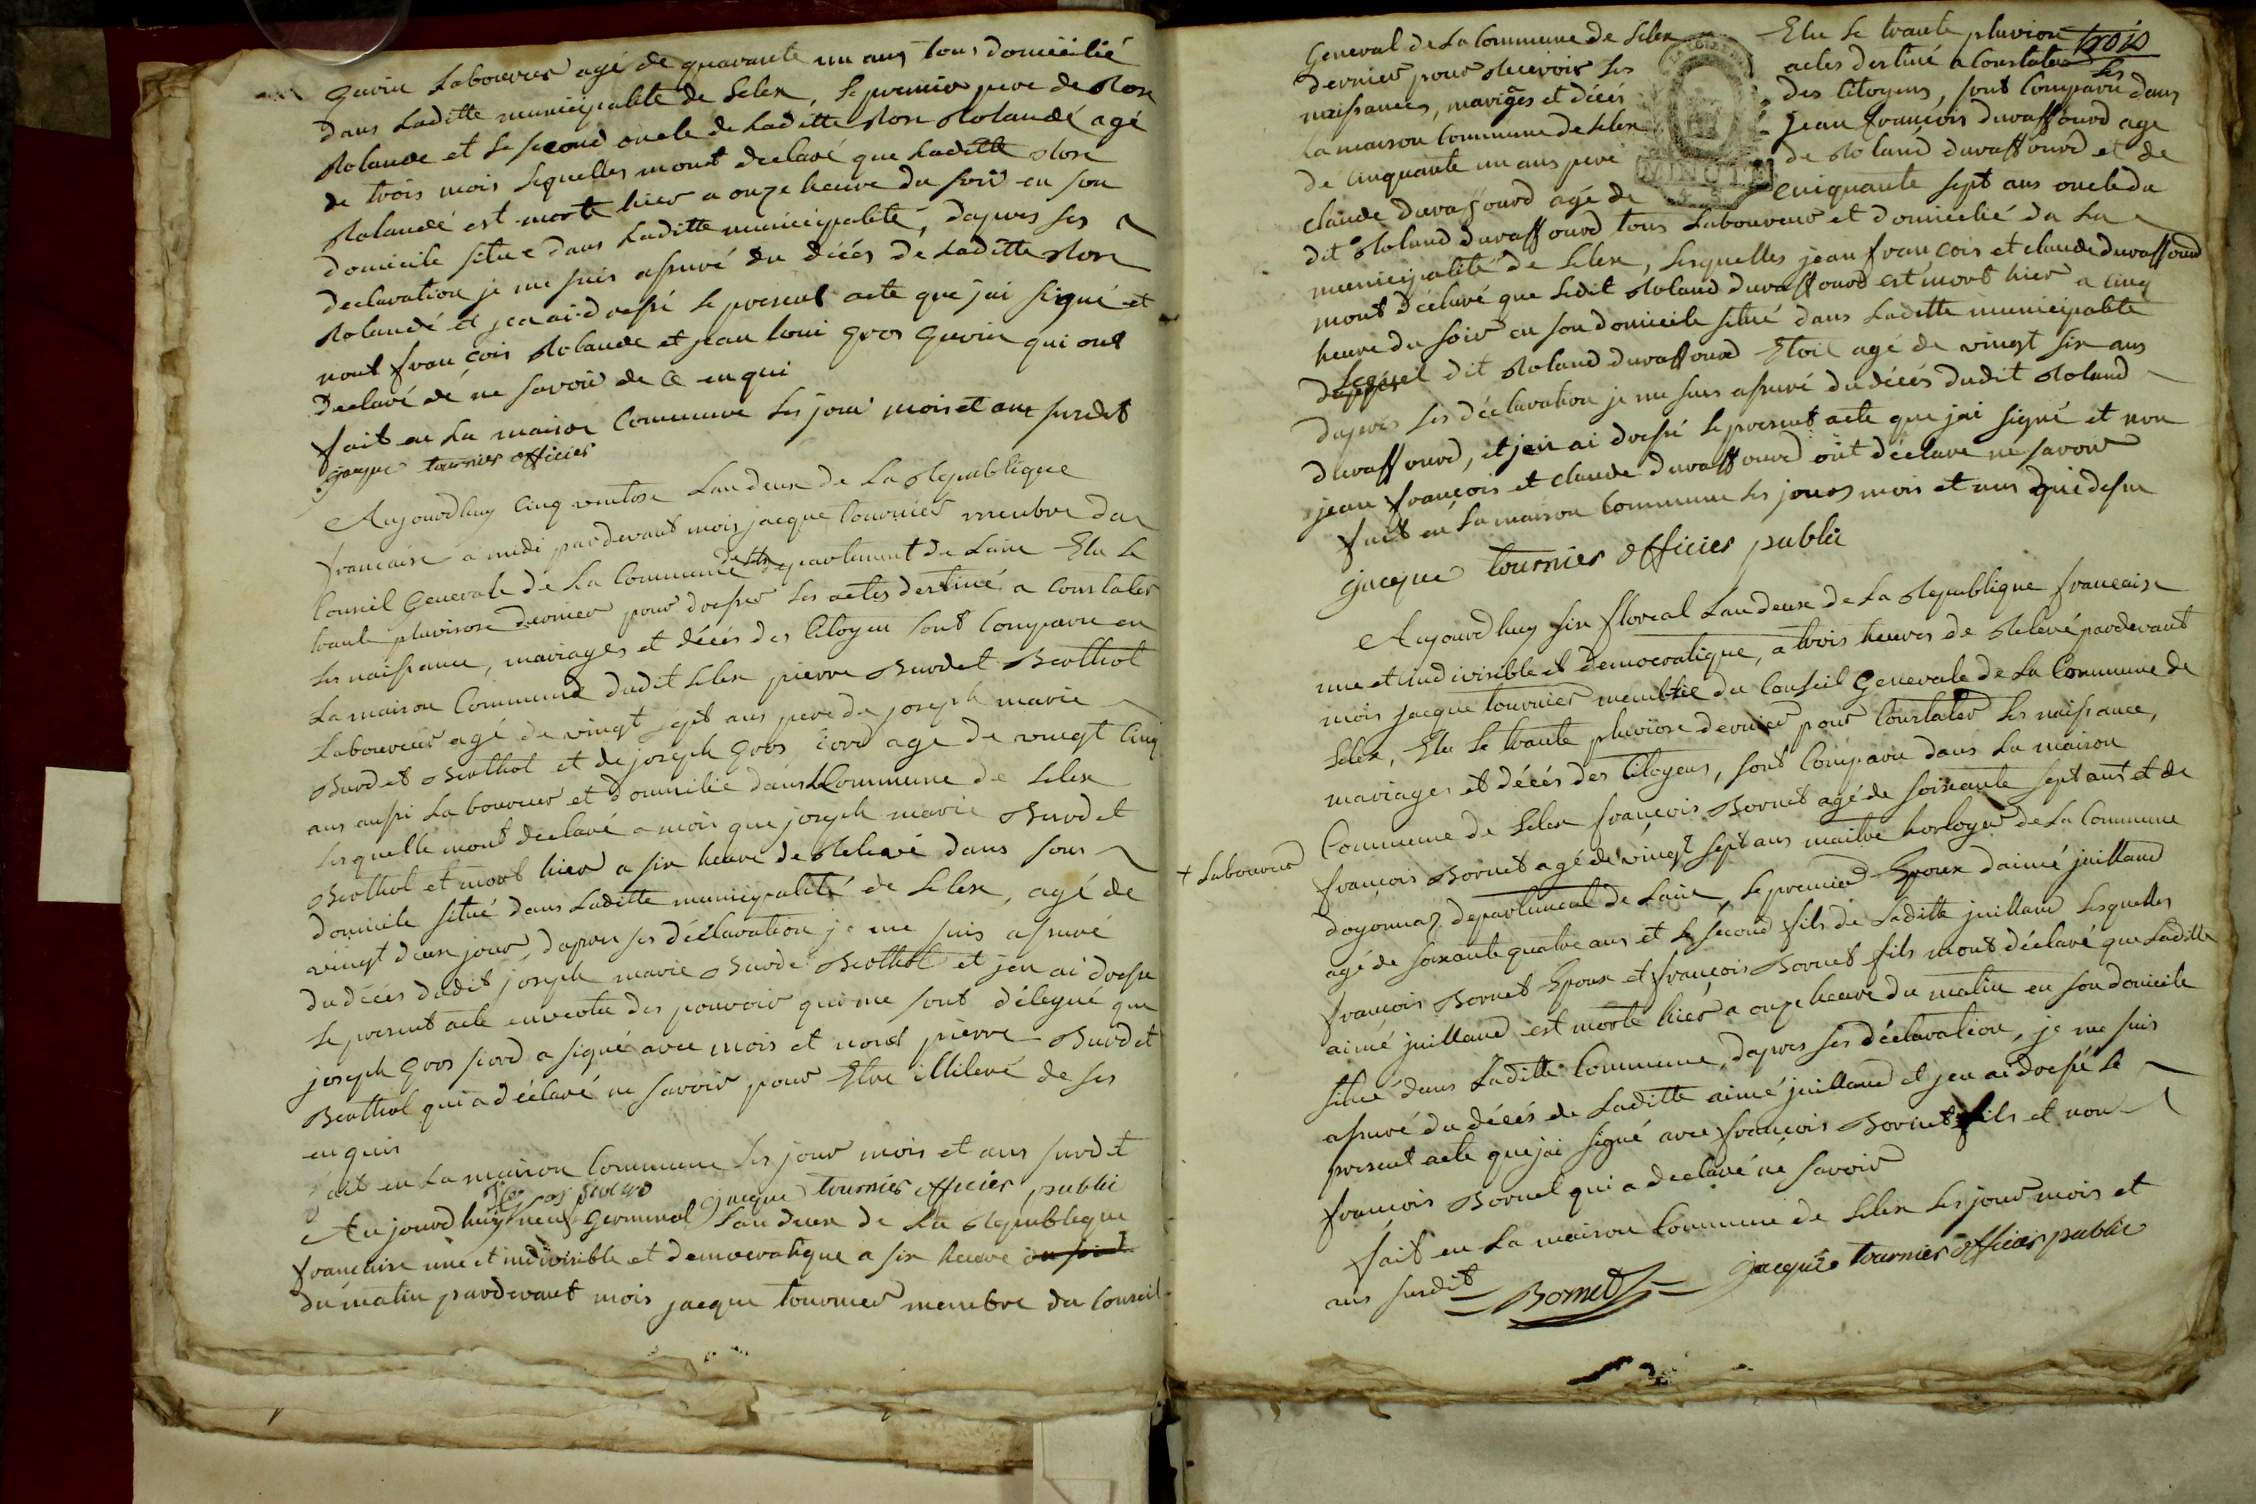 gurin Laboureur agé de quarante un ans tous domicilié
dans Laditte municipalité de Lelex, Le premier pere de Rose
Rolande et Le second oncle de Laditte Rose Rolandé agé
de trois mois Lequelles mont declaré que Laditte Rose
Rolandé est morte hier a onze heure du soir en son
domicile situe dans Laditte municipalité, dapres ses
declaration je me suis assuré du décés de Laditte Rose
Rolandé et jen ai dressé Le present acte que jai signé et
nont francois Rolande et jean Loui gros gurin qui ont
declaré de ne savoir de ce enqui
fait en La maison Commune Les jour mois et ans surdit
jacque tournier officier
Aujourdhuy cinq ventose Lan deux de La Republique
francaise a midi pardevant mois jacque tournier membre du
Conseil Generale de La Commune de Lelex departement de Lain Elu Le
trante pluviose dernier pour dresser Les actes destiné a constater
Les naissance, mariages et décés des Citoyen sont Comparu en
La maison Commune dudit Lelex pierre Burdet Berthot
Laboureur agé de vingt sept ans pere de joseph marie
Burdet Berthot et de joseph gros fiord age de vingt cinq
ans aussi Laboureur et domicilié dans La Commune de Lelex
Lesquelle mont declaré a mois que joseph marie Burdet
Berthot et mort hier a six heure de Relevé dans sons
domicile situé dans Laditte municipalité de Lelex, agé de
vingt deux jour, dapres ses déclaration je me suis assuré
du décés dudit joseph marie Burde Berthot et jen ai dresse
Le present acte en vertu des pouvoir qui me sont délegué que
joseph gros fiord a signé avec mois et nont pierre Burdet
Berthot qui a déclaré ne savoir pour Etre illiteré de ses
enquis
fait en La maison Commune Les jour mois et ans surdit
jacque tournier officier public
Aujourdhuy neuf Germinal Lan deux de La Republique
francaise une et indivisible et democratique a six heure du soir
du matin pardevant mois jacque tournier membre du Conseil
General de La Commune de Lelex Elu Le trante pluviose
trois
dernier pour Recevoir Les actes destiné a Constater Les
naissances, mariages et décés des Citoyens, sont Comparu dans
La maison Commune de Lelex jean francois duraffourd age
de Cinquante un ans pere de Roland duraffourd et de
claude duraffourd agé de Cinquante sept ans oncle du
dit Roland duraffourd tous Laboureur et domicilié du La
municipalité de Lelex, Lesquelles jean francois et claude duraffourd
mont déclaré que Ledit Roland duraffourd est mort hier a cinq
heure du soir en son domicile situé dans Laditte municipalite
Lequel dit Roland duraffourd Etoit agé de vingt six ans
dapres Les déclaration je me suis assuré du décés dudit Roland
duraffourd, et jen ai dressé Le present acte que jai signé et non
jean françois et claude duraffourd ont déclare ne savoir
fait en La maison Commune Les jours mois et ans que dessu
jacque tournier officier public
Aujourdhuy six floreal Lan deux de La Republique francaise
une et indivisible et democratique, a trois heures de Relevé pardevant
mois jacque tournier membre du Conseil Generale de La Commune de
Lelex, Elu Le trante pluviose dernier pour Constater Les naissance,
mariages et décés des Citoyens, sont Comparu dans La maison
Commune de Lelex françois Bornet agé de soixante sept ans et de
+ Laboureur
françois Bornet agé de vingt sept ans maitre horloger de La Commune
doyonnaz departement de Lain, Le premier Epoux daimé juilland
agé de soixante quatre ans et Le second fils de Laditte juilland Lesquelles
françois Bornet Epoux et françois Bornet fils mont déclaré que Laditte
aimé juilland est morte hier a onze heure du matin en son domicile
situé dans Laditte Commune, dapres ses déclaration, je me suis
assuré du décés de Laditte aimé juilland et jen ai dressé Le
present acte que jai signé avec françois Bornet fils et non
françois Bornet qui a declaré ne savoir
fait en La maison Commune de Lelex Les jour mois et
ans surdit
jacque tournier officier public
Bornet